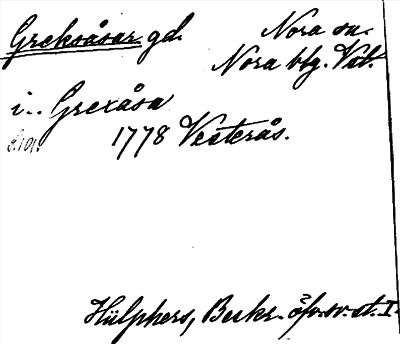 Greksåsar gd. Nora sn.
Nora bbg. Vstm.
i.. Grexåsa
1778 Vesterås.
Hülphers, Beskr. öfv. sv. st. I.